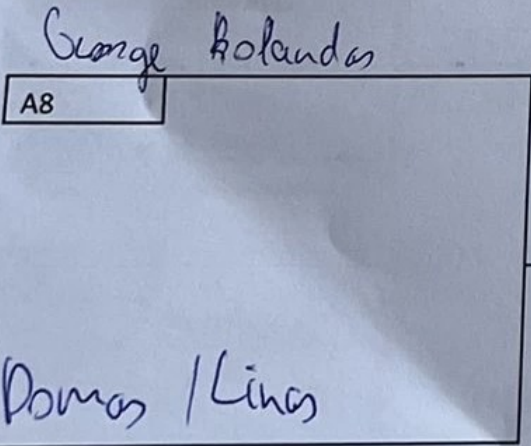 George Rolandas
A8
Domas / Linas